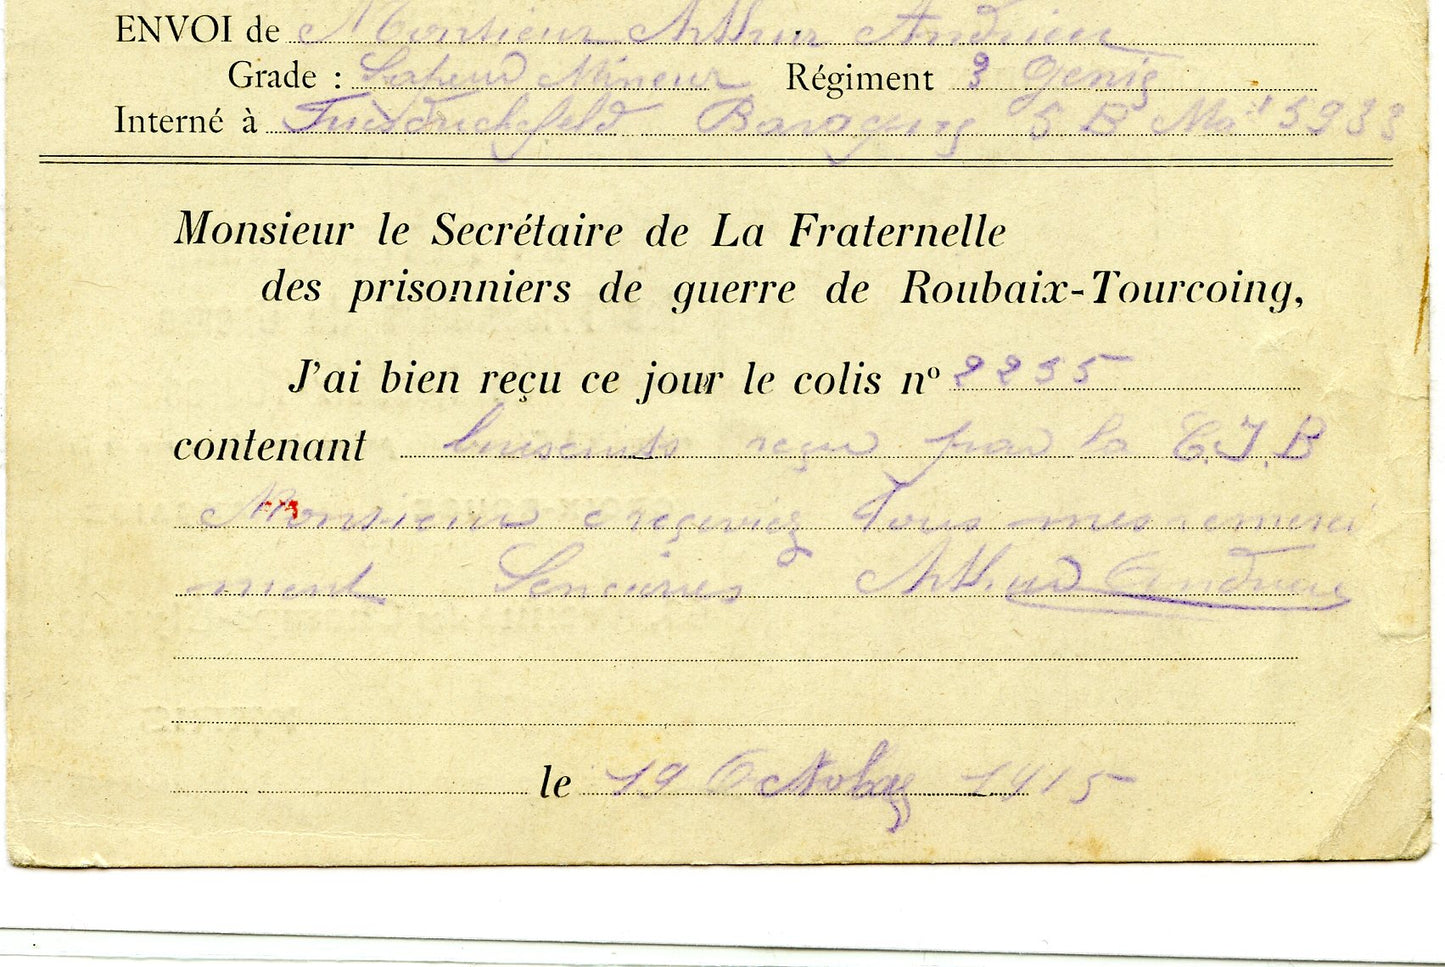 ENVOI de Monsieur Arthur Andrieu
Grade : Sapeur Mineur Régiment 3 Genie
Interné à Friedrichsfeld Baraque 5 B Mle 5933
Monsieur le Secrétaire de La Fraternelle
des prisonniers de guerre de Roubaix-Tourcoing,
J'ai bien reçu ce jour le colis nº 2255
contenant buiscuits reçu par la C.I.B
Monsieur receviez tous mes remerci
ment Sencierres Arthur Andrieu
le 19 Octobre 1915